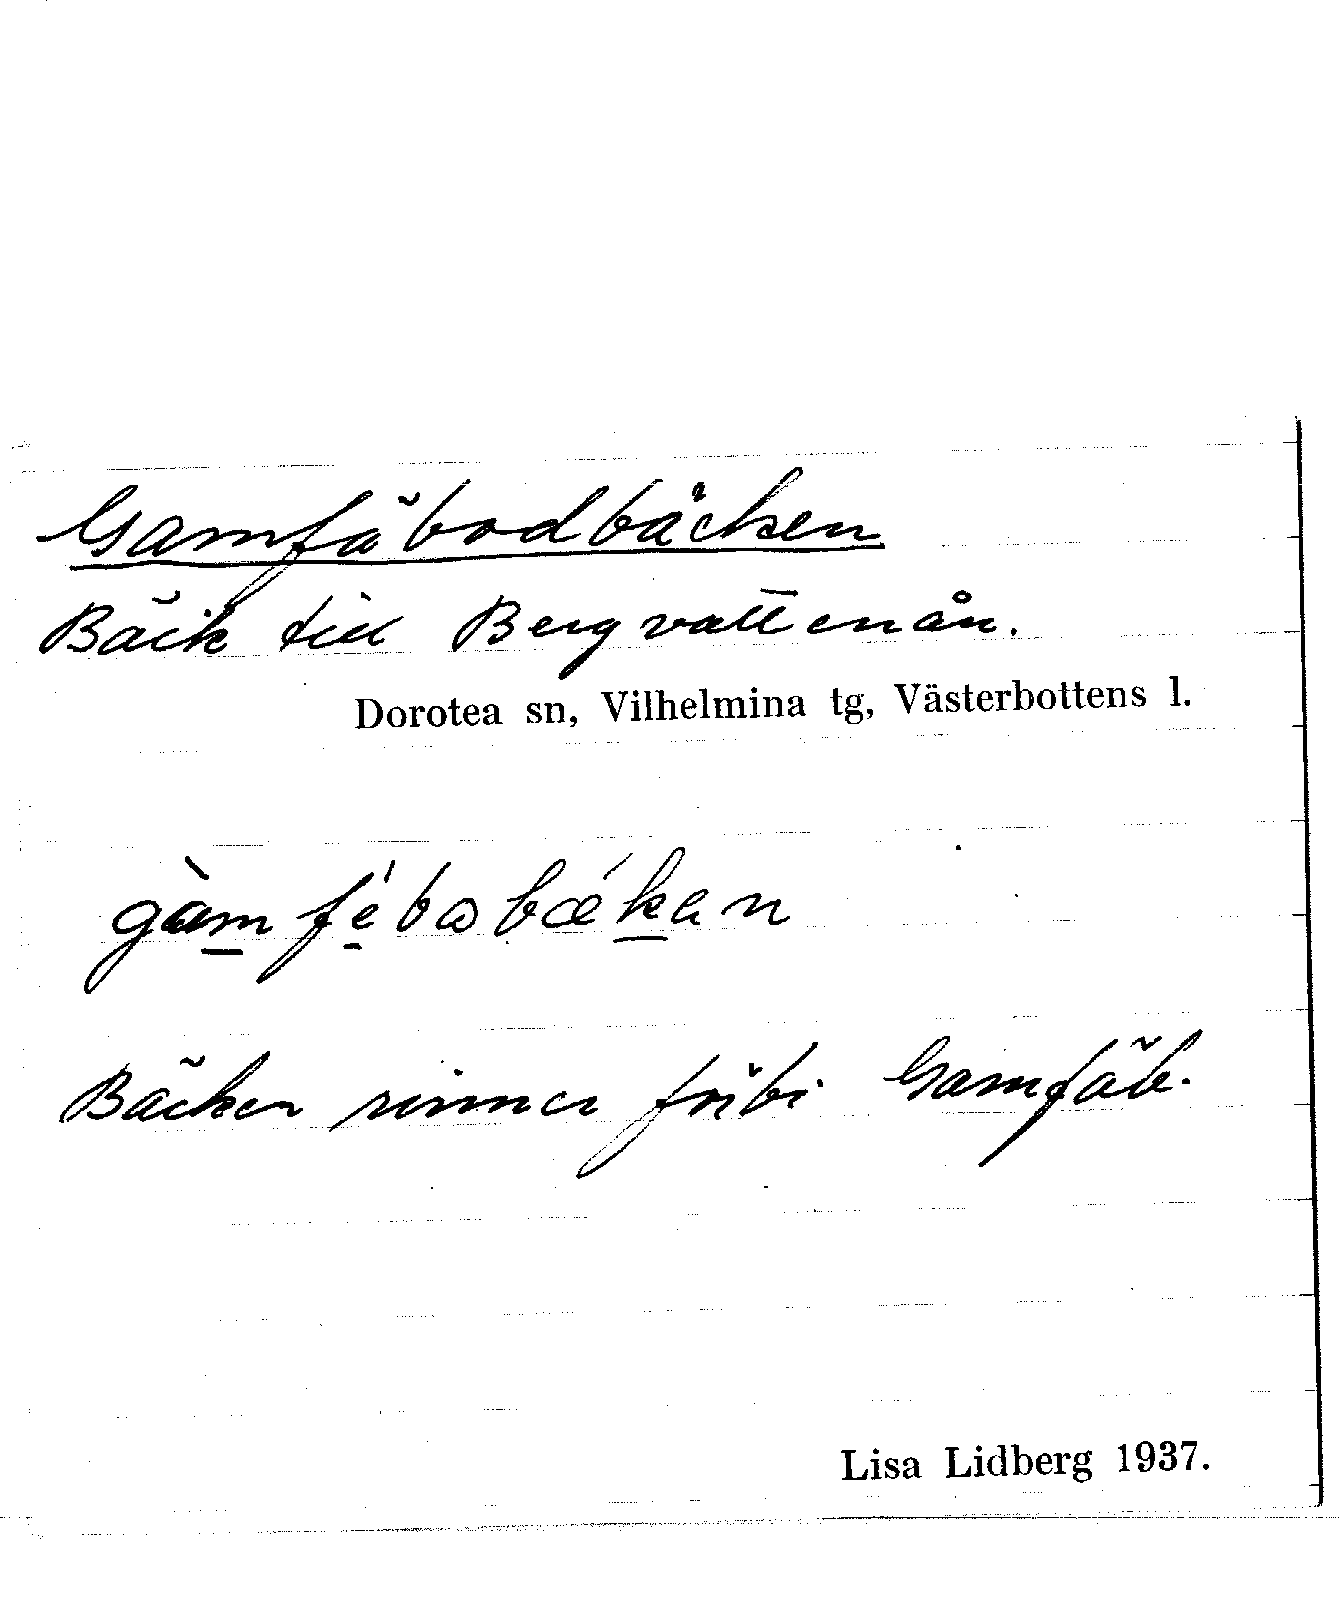 Gamfäbodbäcken
Bäck till Bergvattenån.
Dorotea sn, Vilhelmina tg, Västerbottens l.
gàm̲fé̲babæ̀k̲an
Bäcken rinner förbi Gamfäb.
Lisa Lidberg 1937.